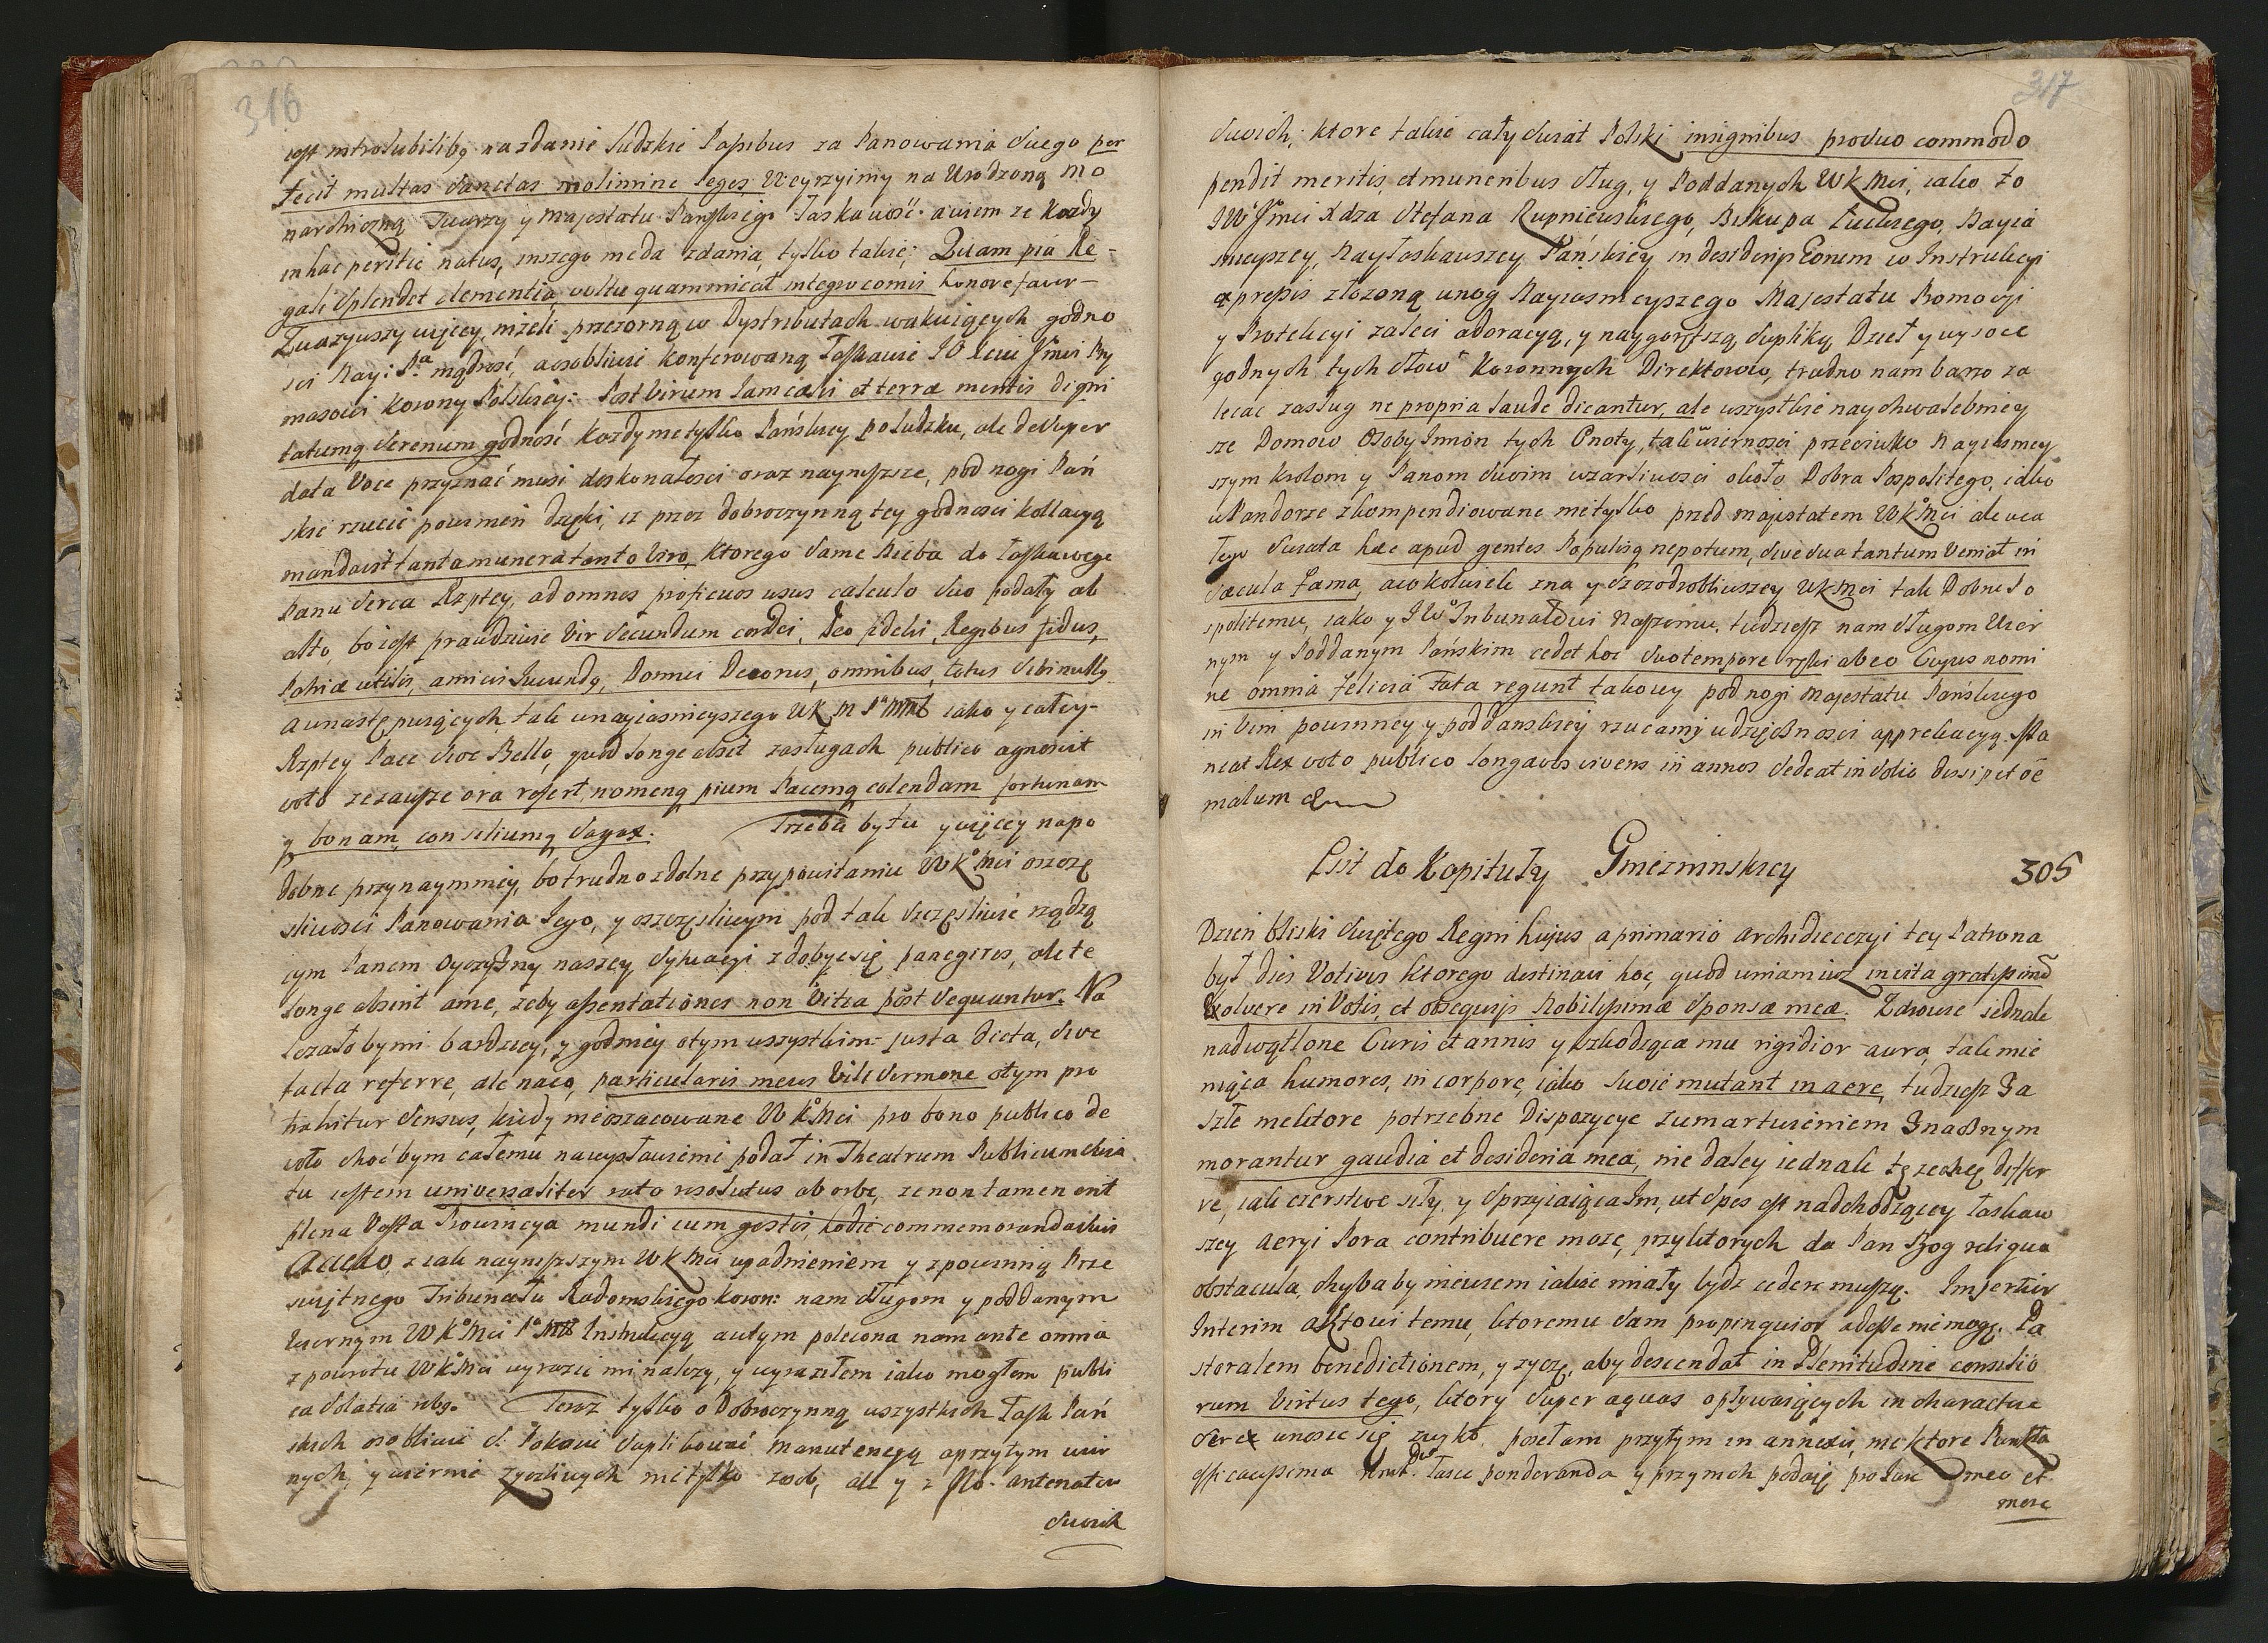 316
iest nitrolubilibq na zdanie ludzkie Papibus za Panowania swego per
fecit multas sanctas molimine leges Weyrzyimy na Urodzoną Mo
narchiczną Twarzy y Majestatu Pańskiego Łaskawość. a wiem ze kozdy
in hac peritie natus, inszego nieda zdania, tylko takie; Quam pia Re-
gali splendet clementia voltu quam micat integro comis honore favor-
Zwazywszy więcey, niżeli przezorną w Dystributach wakuiących godno
sci Nayi: Pa. mądrość, a osobliwie konferowaną Łaskawie JO Xciu Jmci Pry
masowi Korony Polskiey: Post Virum Iam cæli et terræ meritis digni
tatumq serenum godność kozdy nietylko Pańskiey po ludzku, ale desuper
data Voce przyznać musi doskonałosci oraz nayniższe, pod nogi Pań
skie rzucić powinien dzięki, iz przez dobroczynną tey godnosci kollacyą
mandavit tanta munera tanto Viro, ktorego same Nieba do Łaskawego
Panu serca Rzptey, ad omnes proficuos usus calculo suo podały ab
alto, bo iest prawdziwie Vir secundum cordei, Deo fidelis, Regibus fidus,
Patriæ utilis, amicis Iucundq, Domui Decorus, omnibus, totus sibi nullq
a w następuiących tak u nayiasnieyszego WK M Pa Mtt iako y całey-
Rzptey Pace sive Bello, quod longe absit zasługach publico agnoscit
voto ze zawsze ora refert, nomenq pium Pacemq colendam fortunam
q bonam, consiliumq sagax. Trzeba by tu y więcey napo
dobne przynaymniey, bo trudno zdolne przy powitaniu WKo Mci oszczę
sliwosci Panowania Jego, y oszczęsliwym pod tak szczęsliwie rządzą
cym Panem oyczyzny naszey sytuacyi zdobyć się panegires, ale te
longe absint a me, zeby assentationes non Vitia post sequantur. Na
lezało by mi bardziey, y godniey o tym wszystkim justa dicta, sive
facta referre, ale na co, particularis meus vili sermone o tym pro
trahitur sensus, kiedy nieoszacowane WKo Mci pro bono publico de
voto choć bym całemu na wysławienie podał in Theatrum Publicum swia
tu iestem universaliter rato resolutus ab orbe, ze non tamen erit
plena Vesta Prowincya mundi cum gestis hodie commemorandarius
Accedo, z iak nayniższym WK Mci upadnieniem y z powinną Prze
swiętnego Tribunału Radomskiego Koron: nam sługom y poddanym
wiernym WKo Mci Pa Mtt Instrukcyą a w tym polecona nam ante omnia
z powrotu WKo Mci wyrazic mi nalezy, y wyraziłem iako mogłem publi
ca solatia rebq. Teraz tylko o dobroczynną wszystkich Łask Pań
skich osobliwie S. Pokoiu suplikować manutenegą a przytym wier
nych, y wiernie zyczliwych nietylko z osob, ale y z Po. antenatow
swoich
317
swoich, ktore takie cały swiat Polski insignibus prævio commodo
pendit meritis et muneribus sług, y Poddanych WK Mci, iako to
JW Jmci Xdza Stefana Rupniewskiego, Biskupa Łuckiego, Nayia
snieyszey, Nayłaskawszey Pańskiey in desiderijs Eorum w Instrukcyi
expressis złozoną u nog Nayiasnieyszego Majestatu Promocyi
y Protekcyi zaleci adoracyą, y naygorętszą supliką Dzieł y wysoce
godnych tych słow Koronnych Direktorow, trudno nam barzo za
lecac zasług ne propria laude dicantur, ale wszystkie naychwalebniey
sze Domow Osoby Imion tych Cnoty, tak wiernosci przeciwko Nayiasniey
szym Krolom y Panom swoim wzarliwosci około Dobra Pospolitego, iako
w Pandorze zkompendiowane nietylko przed majestatem WKo Mci ale ca
łego swiata hæc apud gentes Populisq nepotum, sive sua tantum Veniat in
sæcula fama, a co kolwiek zna y szczodrobliwszey WK Mci tak Dobru Po
spolitemu, iako y JWo Tribunałowi Naszemu, tudziesz nam sługom Wier
nym y Poddanym Pańskim cedet hoc suo tempore rzki ab eo Cujus nomi
ne omnia felicia fata regunt takowey pod nogi Majestatu Pańskiego
in Vim powinney y poddanskiey rzucamy udzięcznosci apprekacyą. Ma
neat Rex voto publico longævis vivens in annos sedeat in solio dissipet oe
malum &c
List do Kapituły Gniezninskiey 305
Dzien bliski swiętego Regni hujus, a primario Archidiecezyi tey Patrona
był dies Votivus ktorego destinavi hoc, quod uniamisz invita gratissima
solvere in Votis, et obsequijs Nobilissimæ Sponsæ meæ. Zdrowie iednak
nadwątlone Curis et annis y szkodząca mu rigidior aura, tak mie
niąca humores, in corpore, iako swoie mutant in aere, tudziesz Za
szłe niektore potrzebne Dispozycye z umartwieniem Znacznym
morantur gaudia et desideria mea, nie daley iednak tę zechcę differ
re, iak czerstwe siły, y sprzyiaiąca Im, ut spes est nadchodzącey łaskaw
szey aeryi Pora contribuere moze, przy ktorych da Pan Bog reliqua
obstacula, chyba by niewiem iakie miały bydz cedere muszą. Impertior
Interim aktowi temu, ktoremu sam propinquior adesse niemogę. Pa
storalem benedictionem, y zyczę, aby descendat in Plenitudine consilio
rum Virtus tego, ktory super aquas opływaiących in charactere
serca unosic się zwykł. posełam przytym in annexis niektore Punkta
efficacissima łasce ponderanda y przy nich podaię pro Iure meo et
more